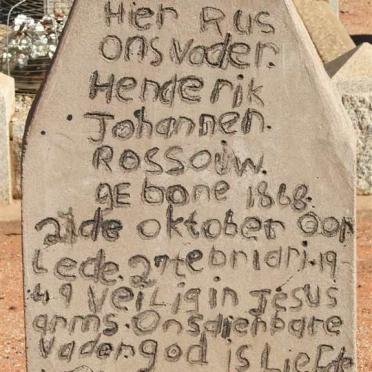 Hier Rus
ons vader.
Henderik
Johannen.
Rossouw.
gebone 1868.
21 de oktober oor
Lede. 27 februari. 19-
49 veilig in Jesus
arms. Ons dienbare
vader god is Liefde